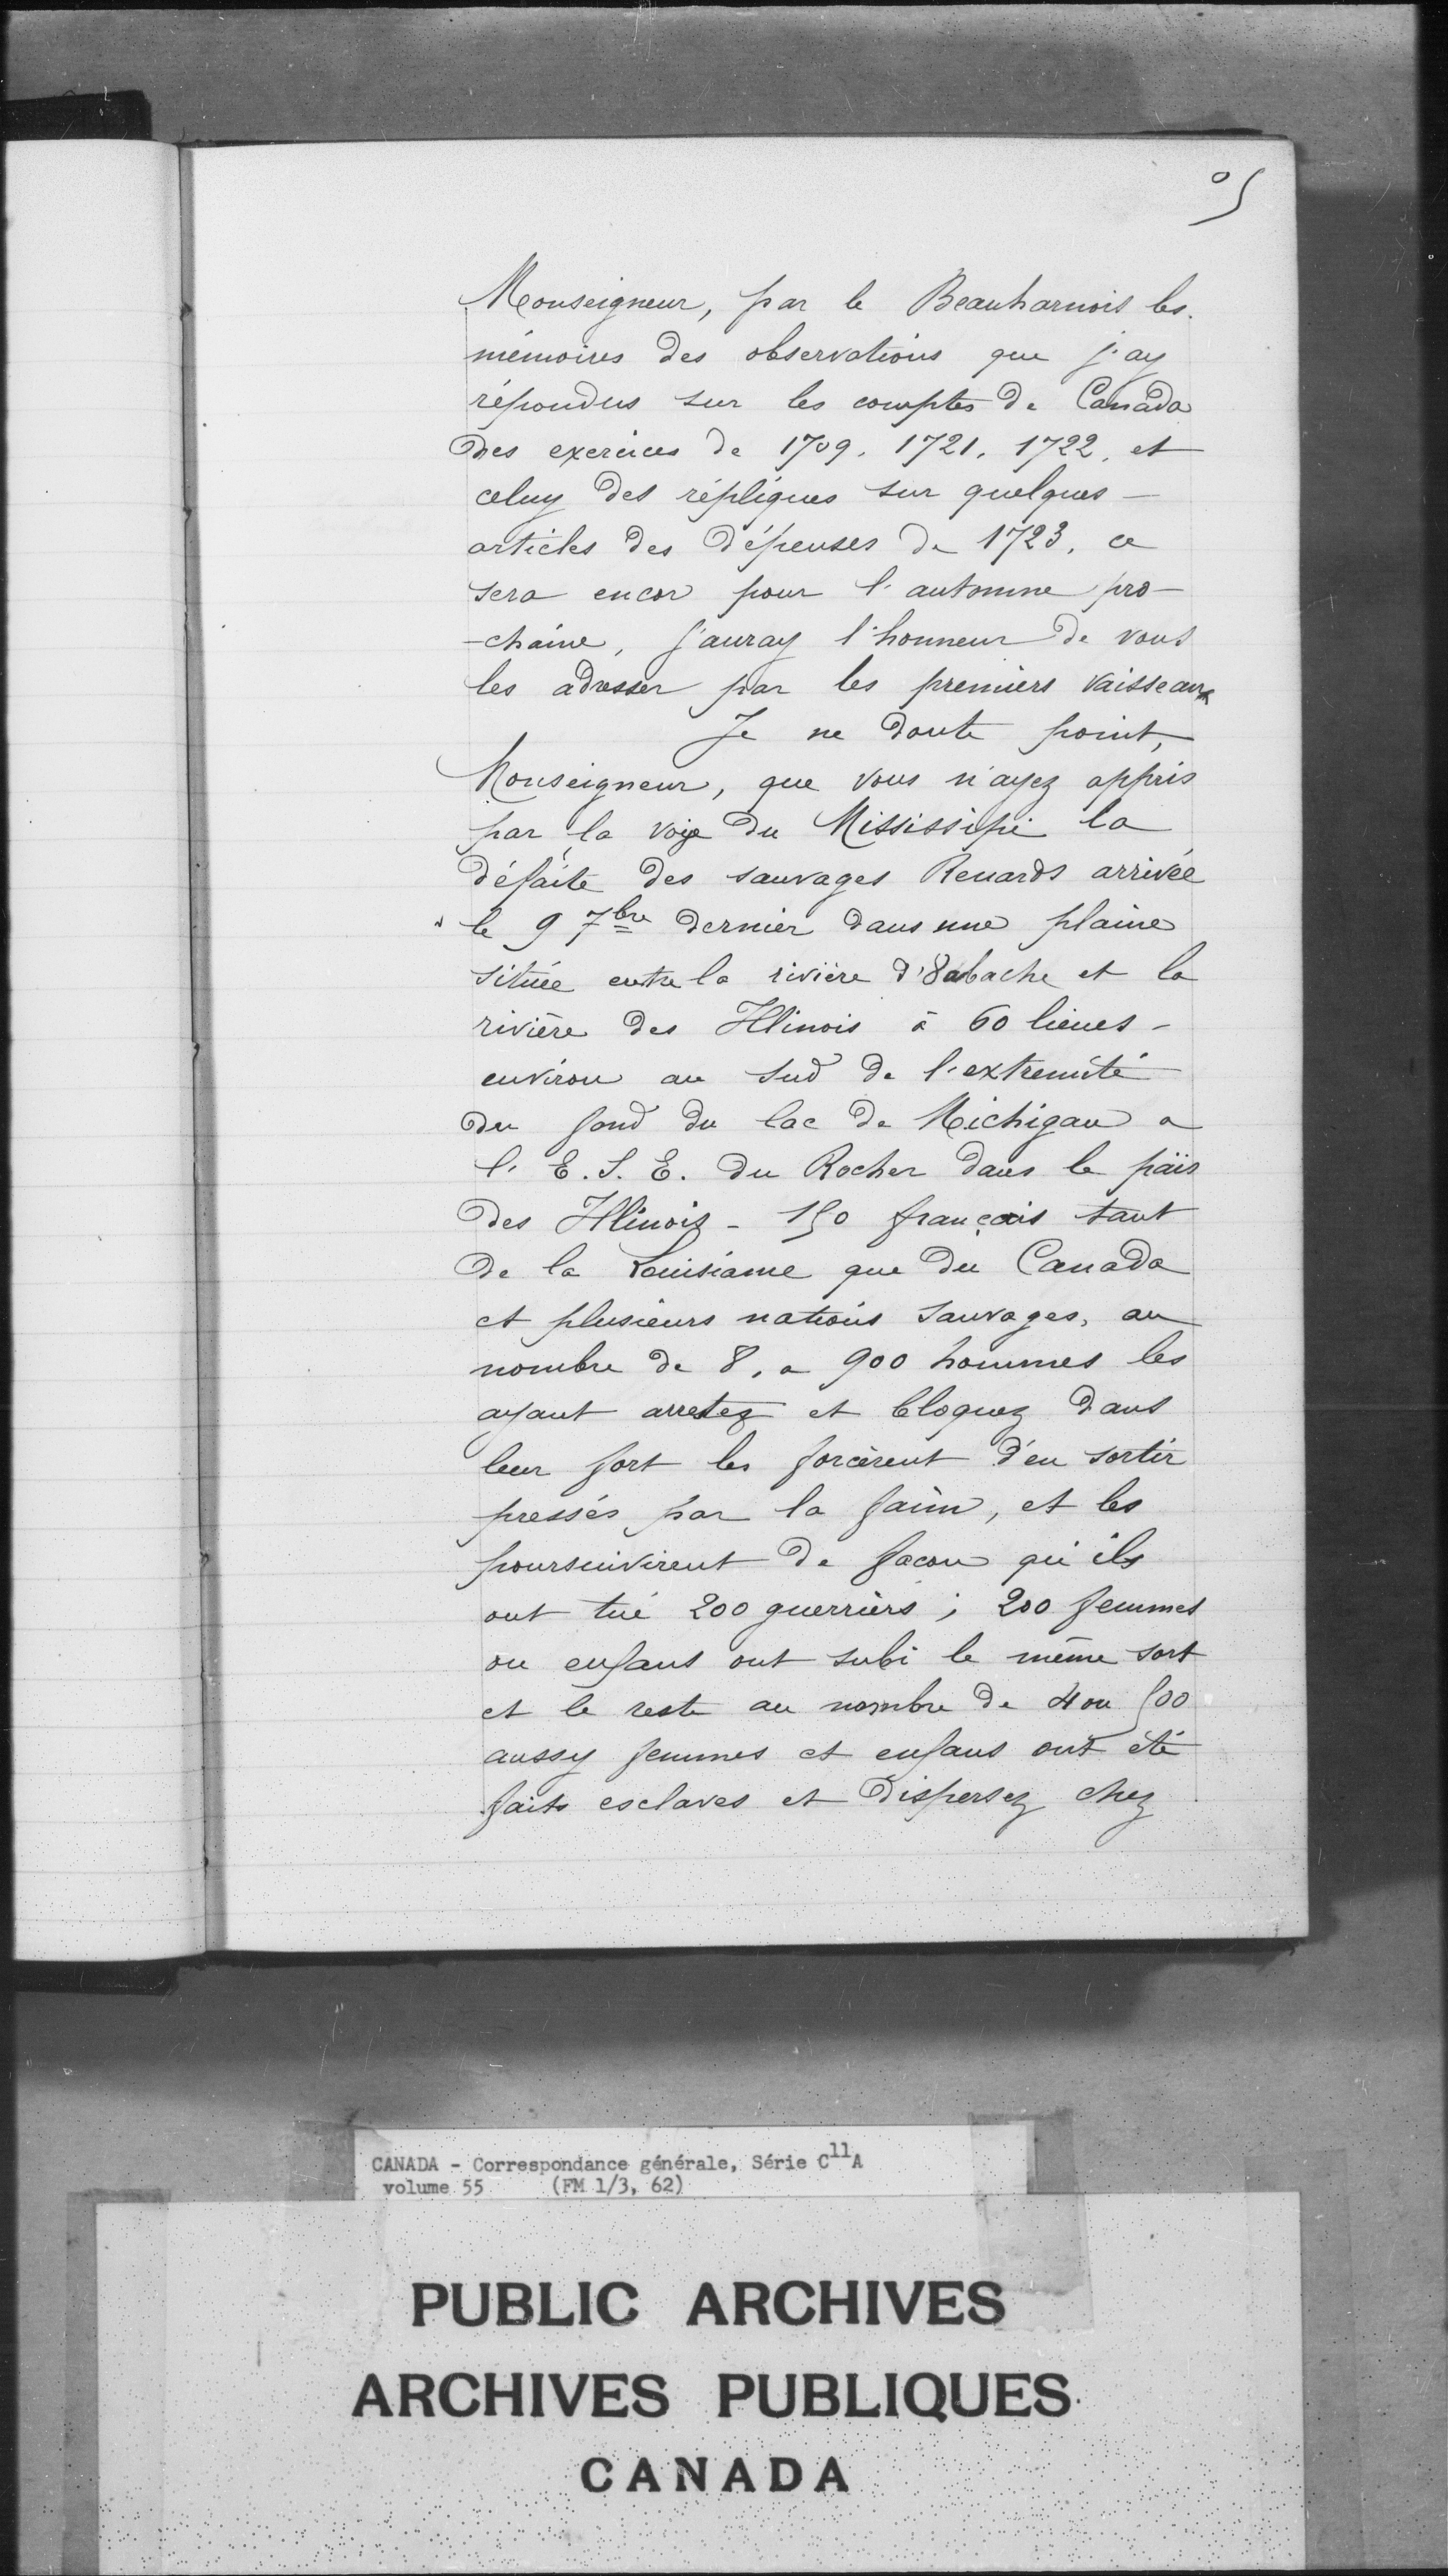 95
Monseigneur, par le Beauharnois les
mémoires des observations que j'ay
répondus sur les comptes de Canada
des exercices de 1709. 1721. 1722. et
celuy des répliques sur quelques -
articles des dépenses de 1723. ce
sera encor pour l'automne pro-
-chaine, j'auray l'honneur de vous
les adresser par les premiers vaisseaux
Je ne doute point,
Monseigneur, que vous n'ayez appris
par la voye du Mississipi la
défaite des sauvages Renards arrivée
le 9 7bre dernier dans une plaine
située entre la rivière d'8abache et la
rivière des Illinois à 60 lieues -
environ au sud de l'extremité
du fond du lac de Michigan a
l'E. S. E. du Rocher dans le païs
des Illinois - 150 français tant
de la Louisiane que du Canada
et plusieurs nations sauvages, au
nombre de 8. a 900 hommes les
ayant arretez et bloquez dans
leur fort les forcèrent d'en sortir
pressés par la faim, et les
poursuivirent de facon qu'ils
ont tué 200 guerriers ; 200 femmes
ou enfans ont subi le même sort
et le reste au nombre de 4 ou 500
aussy femmes et enfans ont été
faits esclaves et dispersez chez
CANADA - Correspondance générale, Série C11A
volume 55 (FM 1/3, 62)
PUBLIC ARCHIVES
ARCHIVES PUBLIQUES
CANADA